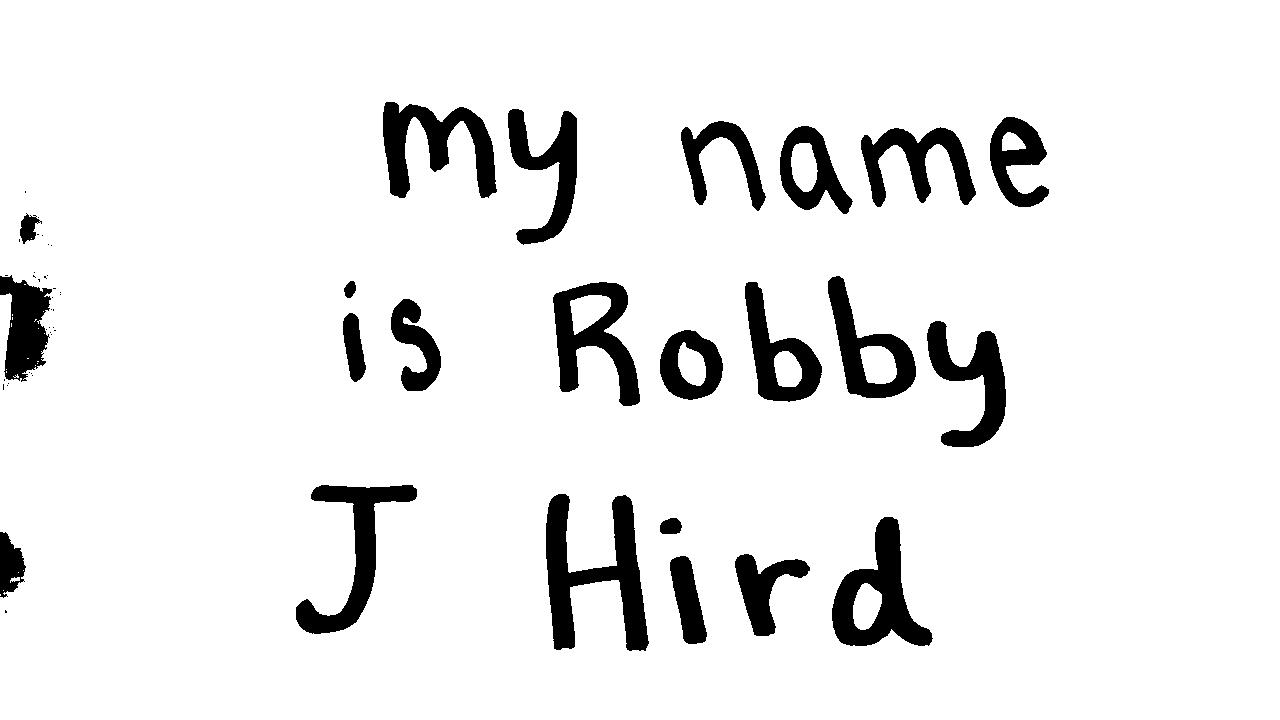 my name
is Robby
J Hird